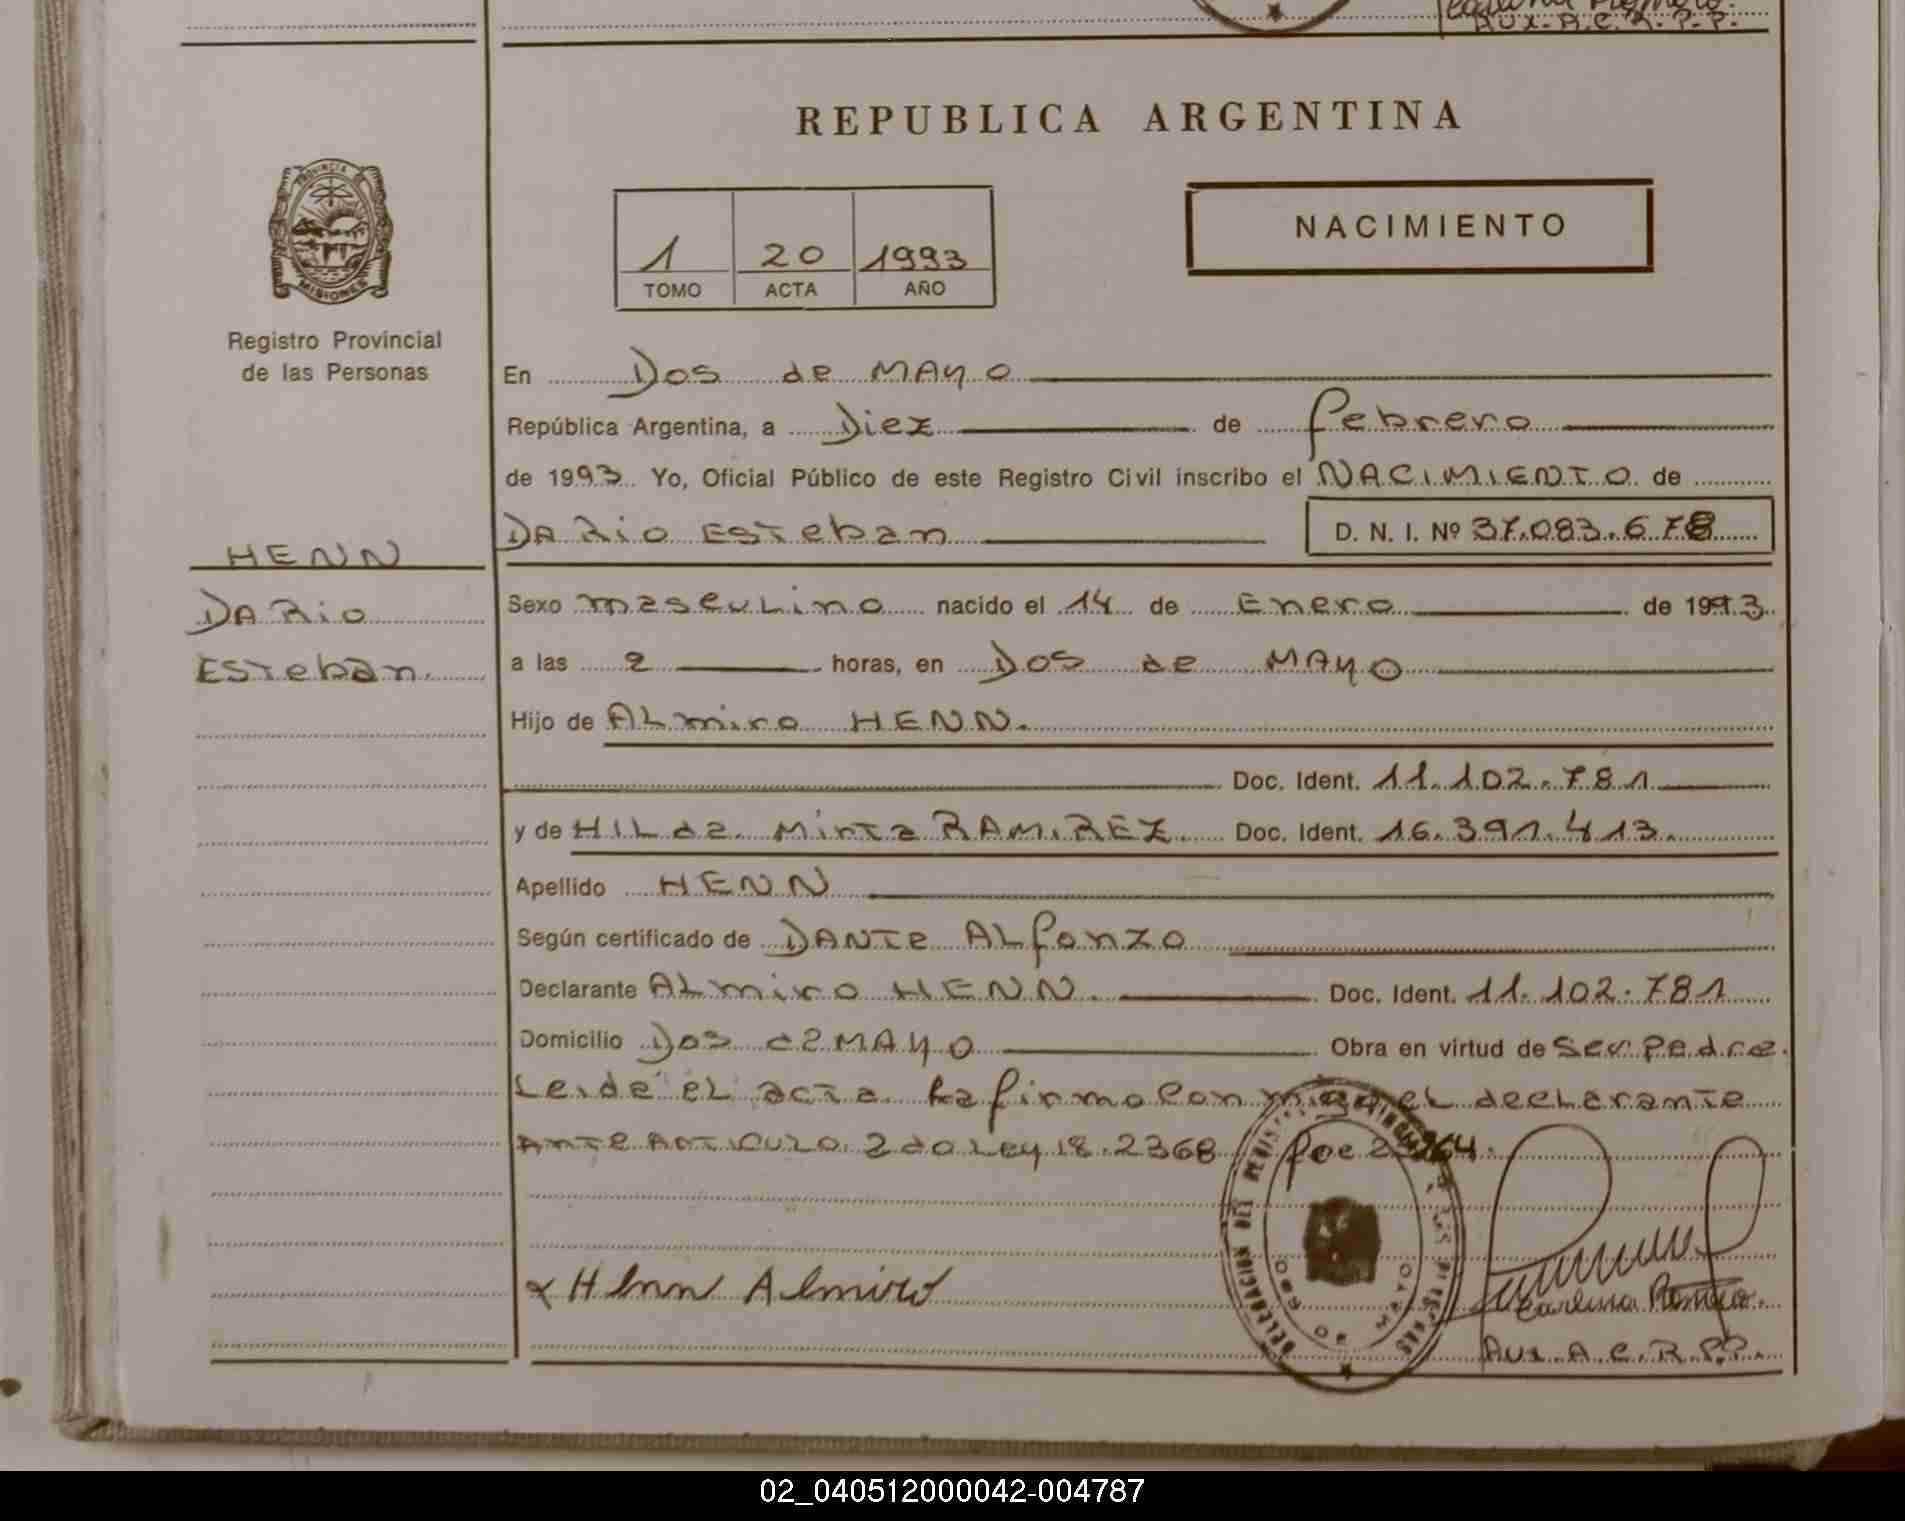 Aux. A.C.R.P.P.
REPUBLICA ARGENTINA
PROVINCIA DE
MISIONES
Registro Provincial
de las Personas
1 20 1993
TOMO ACTA AÑO
NACIMIENTO
En Dos de MAyo
República Argentina, a Diez de febrero
de 1993. Yo, Oficial Público de este Registro Civil inscribo el NACIMIENTO de
DARio ESTeban D. N. I. Nº 37.083.678
HENN
DARio
ESTeban.
Sexo masculino nacido el 14 de Enero de 1993.
a las 2 horas, en Dos de MAyo
Hijo de ALmiro HENN.
Doc. Ident. 11.102.781
y de HILda Mirta RAMIREZ. Doc. Ident. 16.391.413.
Apellido HENN
Según certificado de DANTe ALfonzo
Declarante ALmiro HENN. Doc. Ident. 11.102.781
Domicilio Dos de MAyo Obra en virtud de Ser padre.
Leída el acta la firmo conmigo el declarante
ANTE ARTICULO 2do Ley 18.2368
DELEGACION DEL
Henn Almiro
Aux. A.C.R.P.P.
02_040512000042-004787